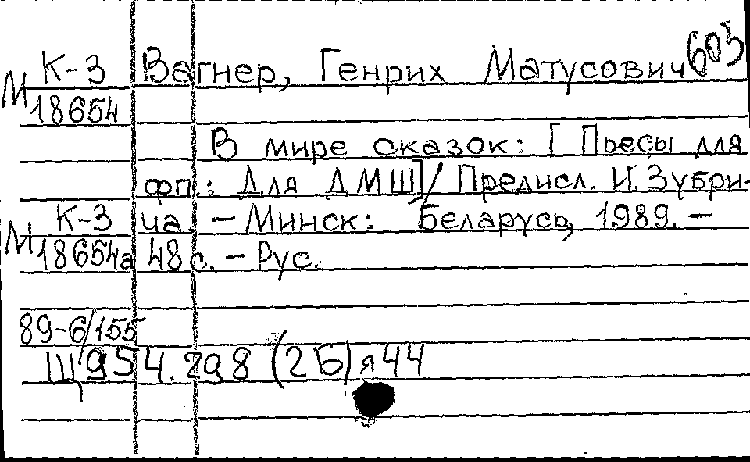 М К-3 Вагнер, Генрих Матусович 603
18654
В мире сказок: [Пьесы для
фп.: Для ДМШ]/ Предисл. И. Зубри-
М К-3 ца. - Минск: Беларусь, 1989. -
18654а 48 с. - Рус.
89-6/155
Щ954.298 (2Б) я44